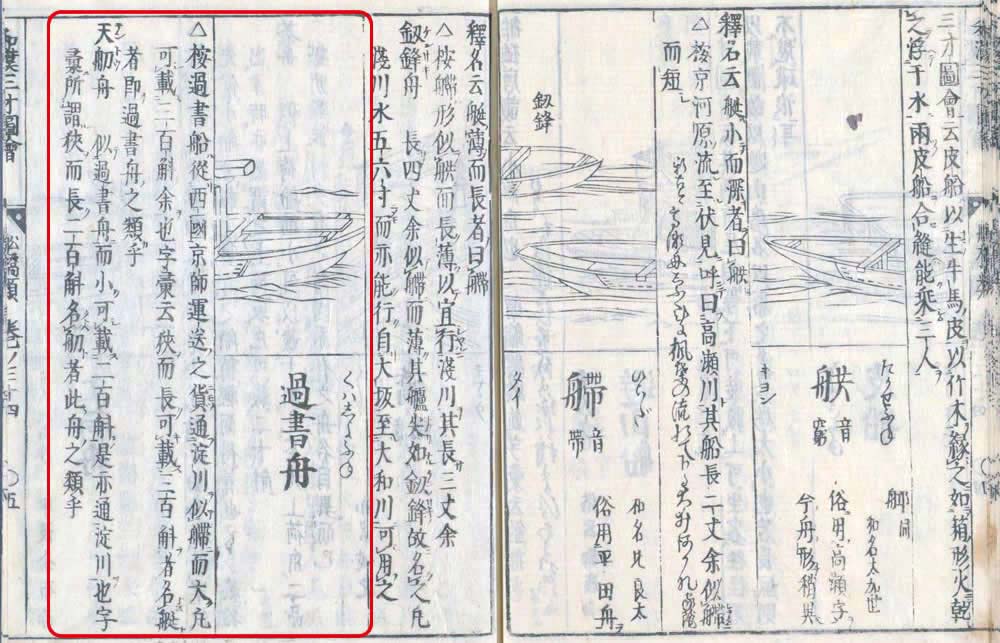 三才圖會云皮船以生牛馬皮以竹木緣之如箱形火乾
之浮于水兩皮船合縫能乘三人
たかせふね
舼
音
キヨン
俗用高瀬字
釋名云艇小而深者曰舼
△按京河原流至伏見呼曰高瀬川其船長二丈余似艜
而短
釼鋒
ひらだ
艜
音帶
タイ
和名比良太
俗用平田舟
釋名云艇薄而長者曰艜
△按艜形似舼而長薄以宜行淺川其長三丈余
釼鋒舟 長四丈余似艜而薄其艫尖如釼鋒故名之凡
淺川水五六寸而亦能行自大坂至大和川可用之
くハしよふね
過書舟
△按過書船從西國京師運送之貨通淀川似艜而大凡
可載三百斛余也字彙云狹而長可載三百斛者名艇
者即過書舟之類乎
天舠舟 似過書舟而小可載二百斛是亦通淀川也字
彙所謂狹而長二百斛名舠者此舟之類乎
和漢三才圖會
船橋類 卷ノ三十四